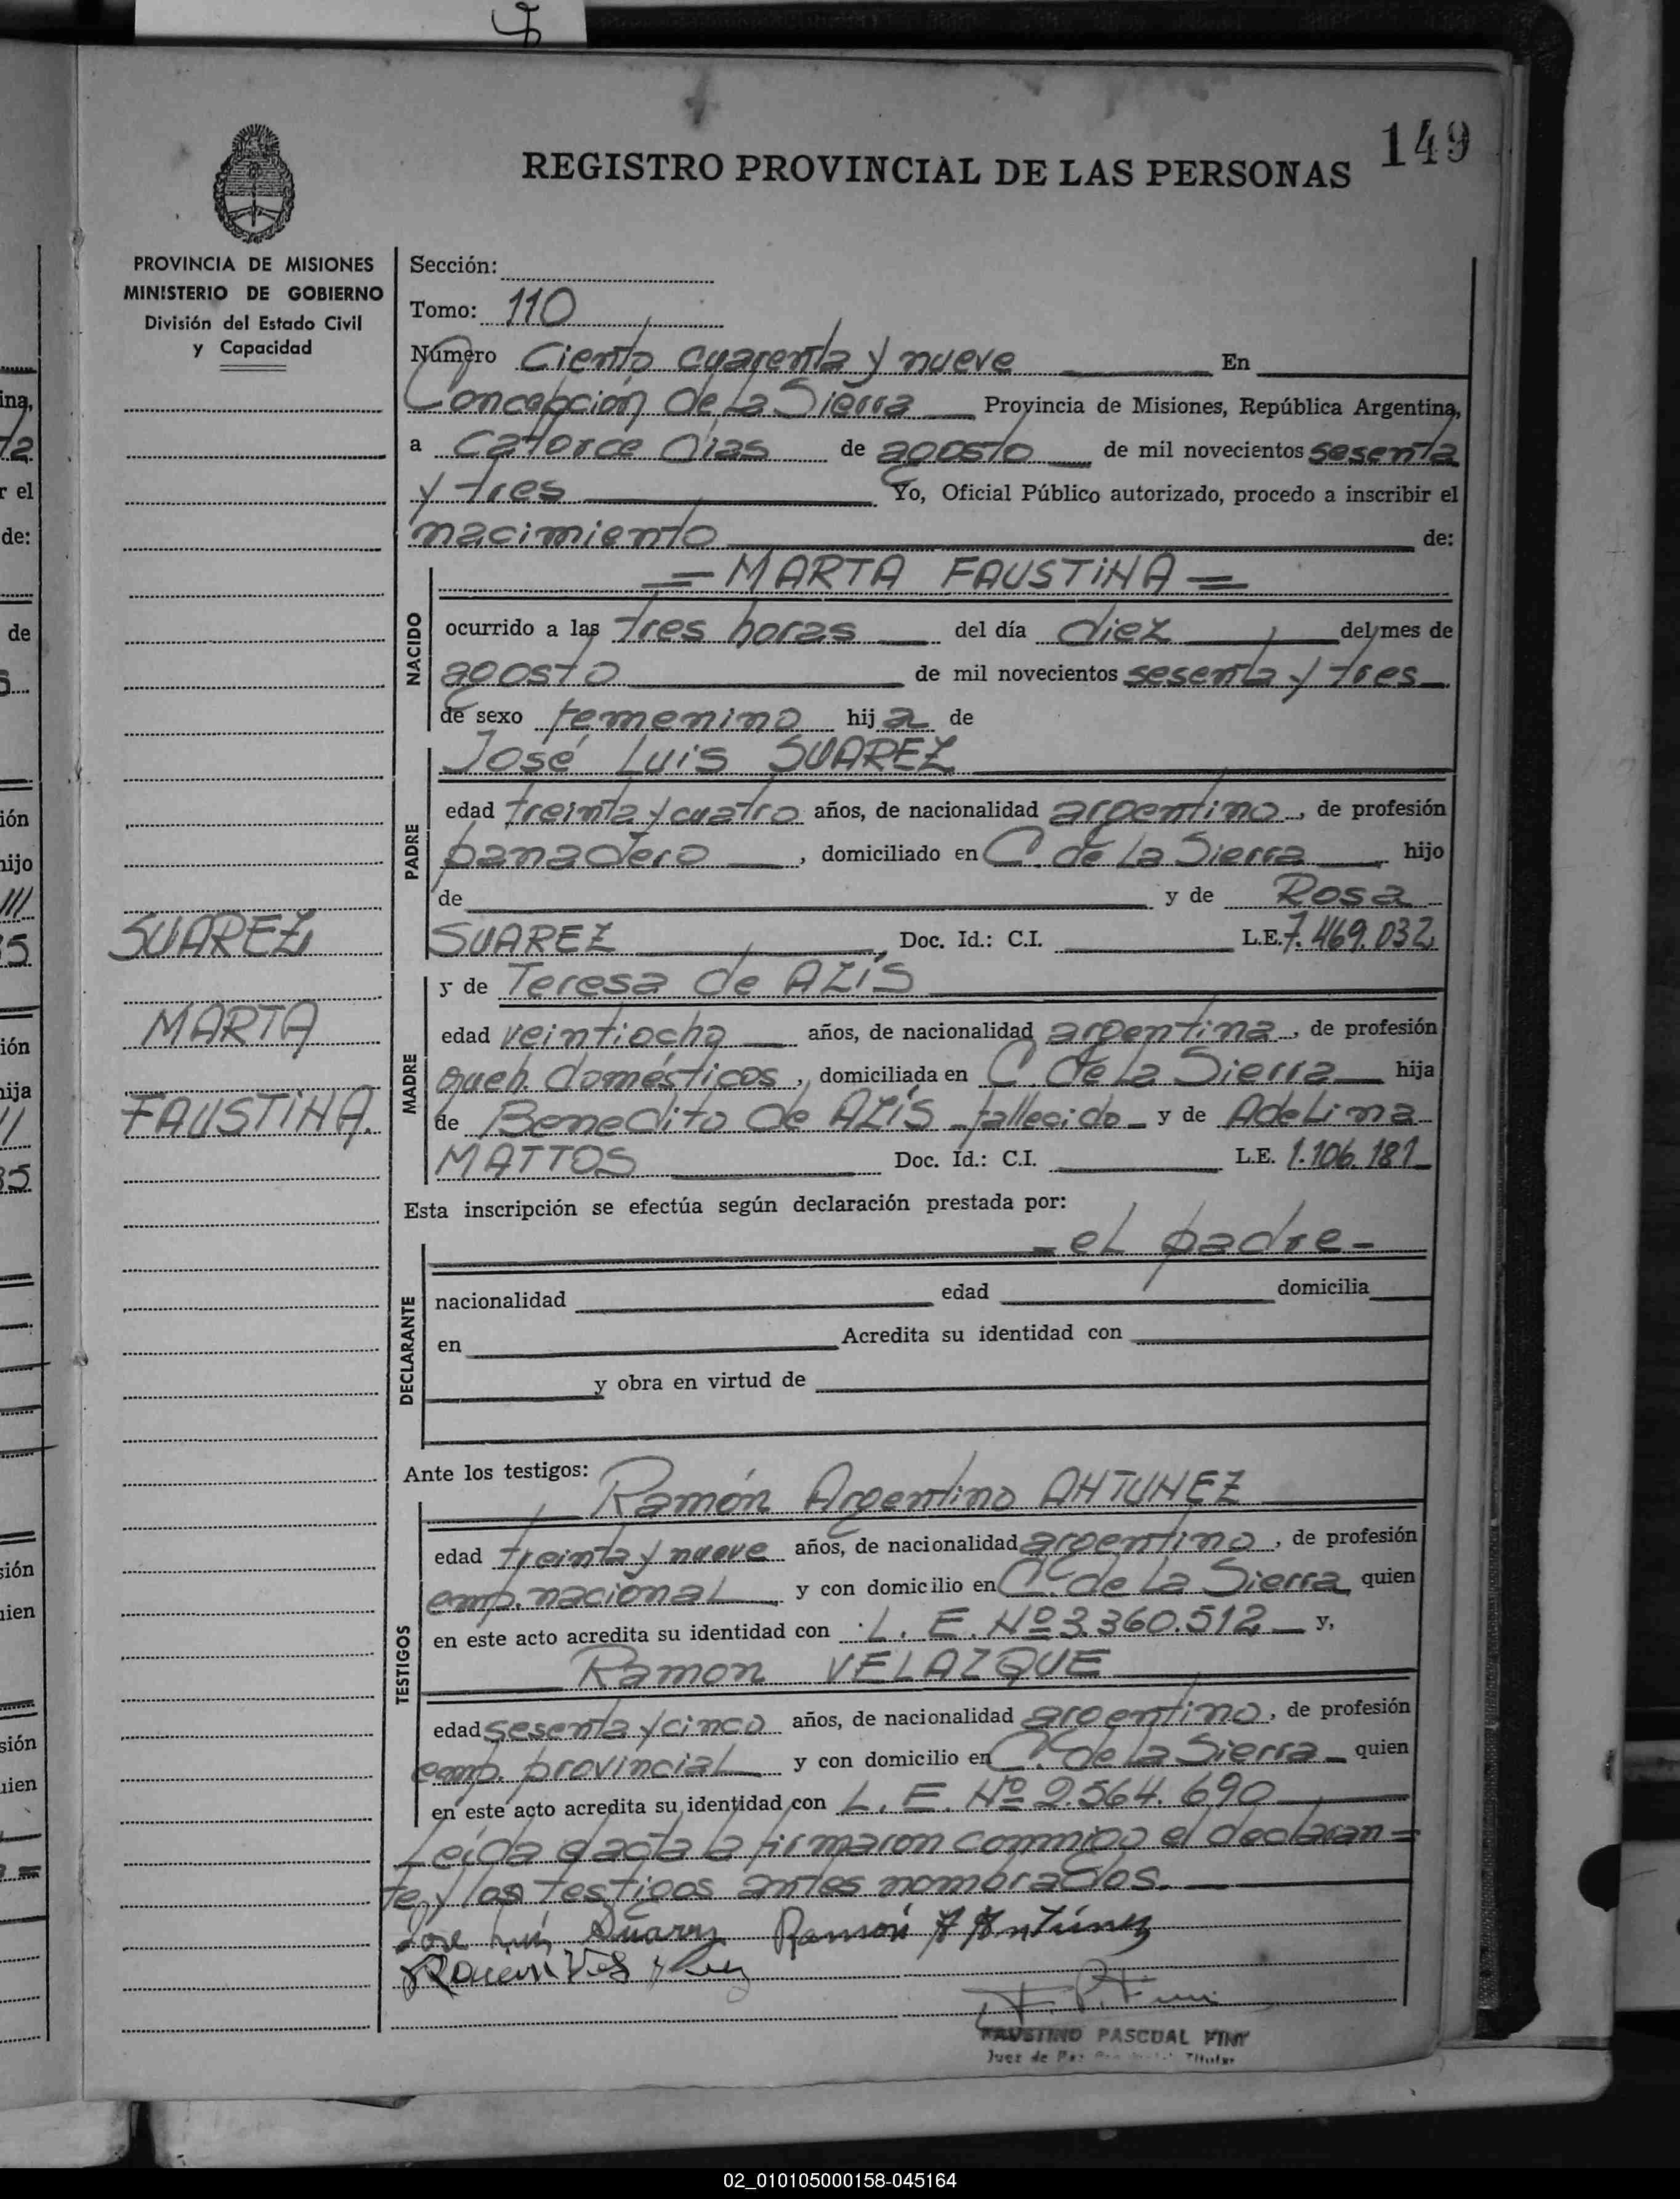 149
REGISTRO PROVINCIAL DE LAS PERSONAS
PROVINCIA DE MISIONES
MINISTERIO DE GOBIERNO
División del Estado Civil
y Capacidad
Sección:
Tomo: 110
Número Ciento cuarenta y nueve En
Concepción de La Sierra Provincia de Misiones, República Argentina,
a catorce días de agosto de mil novecientos sesenta
y tres Yo, Oficial Público autorizado, procedo a inscribir el
nacimiento de:
NACIDO
= MARTA FAUSTINA =
ocurrido a las tres horas del día diez del mes de
agosto de mil novecientos sesenta y tres
de sexo femenino hija de
PADRE
José Luis SUAREZ
edad treinta y cuatro años, de nacionalidad argentino, de profesión
panadero, domiciliado en C. de La Sierra hijo
de y de Rosa
SUAREZ, Doc. Id.: C.I. L.E. 7.469.032,
MADRE
y de Teresa de AZIS
edad veintiocho años, de nacionalidad argentina, de profesión
queh. domésticos, domiciliada en C. de La Sierra hija
de Benedito de AZIS -fallecido- y de Adelina
MATTOS Doc. Id.: C.I. L.E. 1.106.181
SUAREZ,
MARTA
FAUSTINA.
Esta inscripción se efectúa según declaración prestada por:
DECLARANTE
- el padre -
nacionalidad edad domicilia
en Acredita su identidad con
y obra en virtud de
Ante los testigos:
TESTIGOS
Ramón Argentino ANTUNEZ
edad treinta y nueve años, de nacionalidad argentino, de profesión
emp. nacional y con domicilio en C. de La Sierra quien
en este acto acredita su identidad con L. E. Nº 3.360.512 y,
Ramon VELAZQUE
edad sesenta y cinco años, de nacionalidad argentino, de profesión
emp. provincial y con domicilio en C. de La Sierra quien
en este acto acredita su identidad con L. E. Nº 2.564.690
Leída el acta la firmaron conmigo el declaran=
te y los testigos antes nombrados.
José Luis Suarez Ramón A Antúnez
FAUSTINO PASCUAL PINY
Juez de Paz Titular
02_010105000158-045164